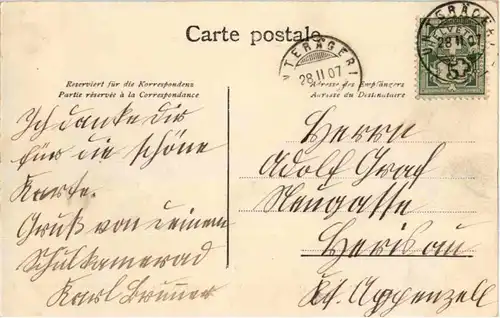 Carte postale.
UNTERÄGERI
28 II 07
UNTERÄGERI
28 II
HELVETIA
5
Reserviert für die Korrespondenz
Partie réservée à la Correspondance
Adresse des Empfängers
Adresse du Destinataire
Ich danke dir
für die schöne
Karte.
Gruß von deinem
Schulkamerad
Karl Brunner
Herrn
Adolf Graf
Neugasse
Herisau
Kt. Appenzell